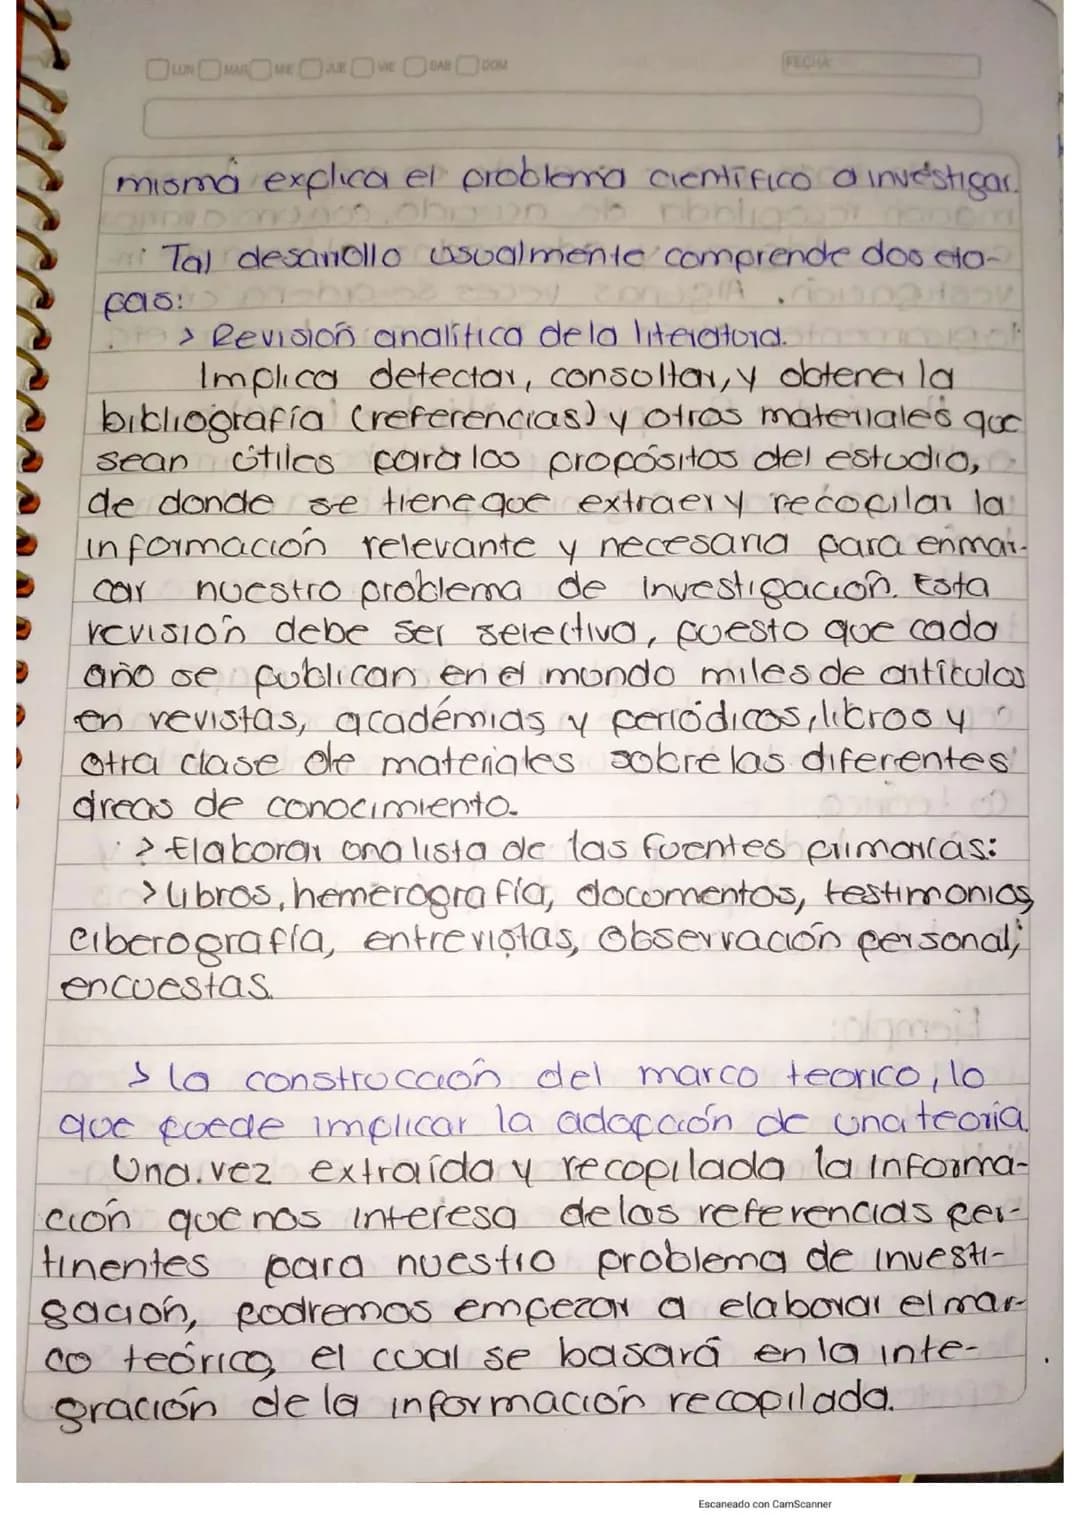 LUN MAR MIE JUE VIE SAB DOM FECHA
misma explica el problema científico a investigar.
Tal desarrollo usualmente comprende dos eta-
pas:
> Revisión analítica de la literatura.
Implica detectar, consultar, y obtener la
bibliografía (referencias) y otros materiales que
sean útiles para los propósitos del estudio,
de donde se tiene que extraer y recopilar la
información relevante y necesaria para enmar-
car nuestro problema de investigación. Esta
revisión debe ser selectiva, puesto que cada
año se publican en el mundo miles de artículos
en revistas, académias y periódicos, libros y
otra clase de materiales sobre las diferentes
áreas de conocimiento.
> Elaborar una lista de las fuentes primarias:
> libros, hemerografía, documentos, testimonios,
ciberografía, entrevistas, observación personal,
encuestas.
> la construcción del marco teorico, lo
que puede implicar la adopción de una teoría.
Una vez extraída y recopilada la informa-
ción que nos interesa de las referencias per-
tinentes para nuestro problema de investi-
gación, podremos empezar a elaborar el mar-
co teórico, el cual se basará en la inte-
gración de la información recopilada.
Escaneado con CamScanner